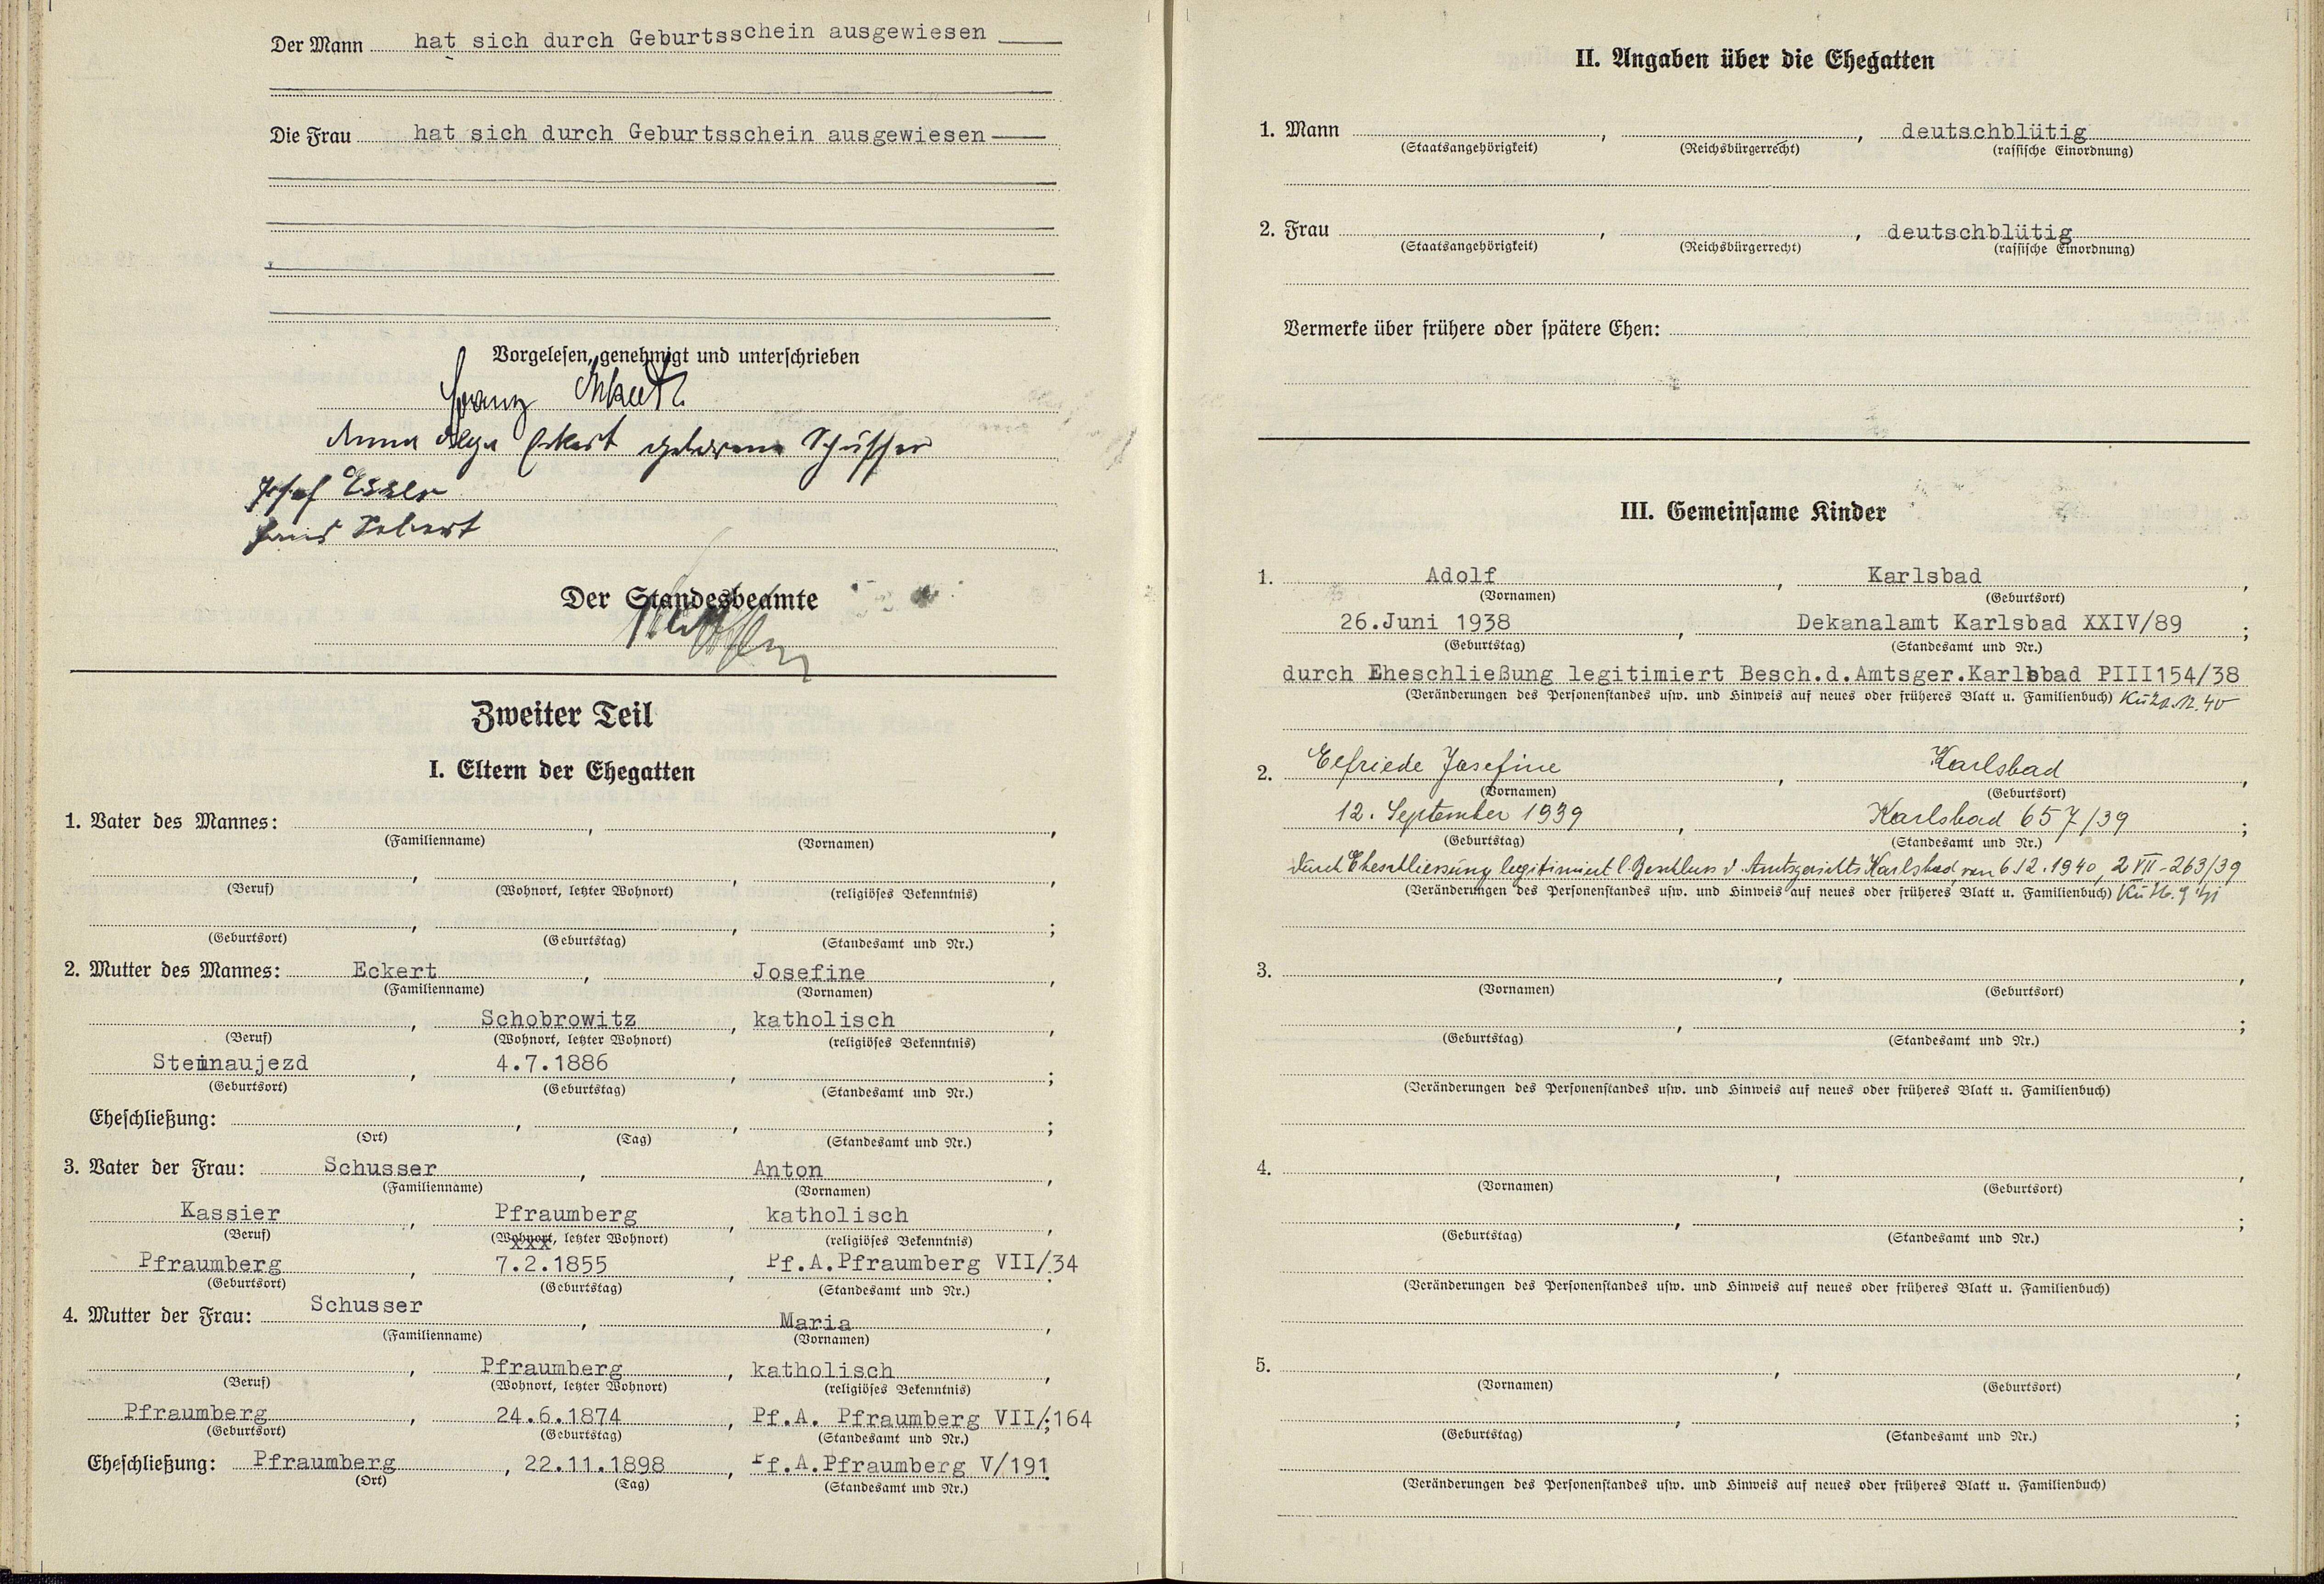 Der Mann hat sich durch Geburtsschein ausgewiesen
Die Frau hat sich durch Geburtsschein ausgewiesen
Vorgelesen, genehmigt und unterschrieben
Franz
Anna Olga Eckert geborene Schusser
Josef
Hans
Der Standesbeamte
Zweiter Teil
I. Eltern der Ehegatten
1. Vater des Mannes: , ,
(Familienname) (Vornamen)
, , ,
(Beruf) (Wohnort, letzter Wohnort) (religiöses Bekenntnis)
, , ;
(Geburtsort) (Geburtstag) (Standesamt und Nr.)
2. Mutter des Mannes: Eckert , Josefine ,
(Familienname) (Vornamen)
, Schobrowitz , katholisch ,
(Beruf) (Wohnort, letzter Wohnort) (religiöses Bekenntnis)
Steinaujezd , 4.7.1886 , ;
(Geburtsort) (Geburtstag) (Standesamt und Nr.)
Eheschließung: , , ;
(Ort) (Tag) (Standesamt und Nr.)
3. Vater der Frau: Schusser , Anton ,
(Familienname) (Vornamen)
Kassier , Pfraumberg , katholisch ,
(Beruf) (Wohnort, letzter Wohnort) (religiöses Bekenntnis)
Pfraumberg , 7.2.1855 , Pf.A.Pfraumberg VII/34 ;
(Geburtsort) (Geburtstag) (Standesamt und Nr.)
4. Mutter der Frau: Schusser , Maria ,
(Familienname) (Vornamen)
, Pfraumberg , katholisch ,
(Beruf) (Wohnort, letzter Wohnort) (religiöses Bekenntnis)
Pfraumberg , 24.6.1874 , Pf.A. Pfraumberg VII/;164
(Geburtsort) (Geburtstag) (Standesamt und Nr.)
Eheschließung: Pfraumberg , 22.11.1898 , Pf.A.Pfraumberg V/191.
(Ort) (Tag) (Standesamt und Nr.)
II. Angaben über die Ehegatten
1. Mann , , deutschblütig .
(Staatsangehörigkeit) (Reichsbürgerrecht) (rassische Einordnung)
2. Frau , , deutschblütig
(Staatsangehörigkeit) (Reichsbürgerrecht) (rassische Einordnung)
Vermerke über frühere oder spätere Ehen:
III. Gemeinsame Kinder
1. Adolf , Karlsbad ,
(Vornamen) (Geburtsort)
26.Juni 1938 , Dekanalamt Karlsbad XXIV/89 ;
(Geburtstag) (Standesamt und Nr.)
durch Eheschließung legitimiert Besch.d.Amtsger.Karlsbad PIII154/38
(Veränderungen des Personenstandes usw. und Hinweis auf neues oder früheres Blatt u. Familienbuch)
2. Elfriede Josefine , Karlsbad ,
(Vornamen) (Geburtsort)
12. September 1939 , Karlsbad 657/39 ;
(Geburtstag) (Standesamt und Nr.)
durch Eheschliessung legitimiert l. Beschluss d. Amtsgerichts Karlsbad von 6.2.1940, 2 VII - 263/39
(Veränderungen des Personenstandes usw. und Hinweis auf neues oder früheres Blatt u. Familienbuch)
3. , ,
(Vornamen) (Geburtsort)
, ;
(Geburtstag) (Standesamt und Nr.)
(Veränderungen des Personenstandes usw. und Hinweis auf neues oder früheres Blatt u. Familienbuch)
4. , ,
(Vornamen) (Geburtsort)
, ;
(Geburtstag) (Standesamt und Nr.)
(Veränderungen des Personenstandes usw. und Hinweis auf neues oder früheres Blatt u. Familienbuch)
5. , ,
(Vornamen) (Geburtsort)
, ;
(Geburtstag) (Standesamt und Nr.)
(Veränderungen des Personenstandes usw. und Hinweis auf neues oder früheres Blatt u. Familienbuch)